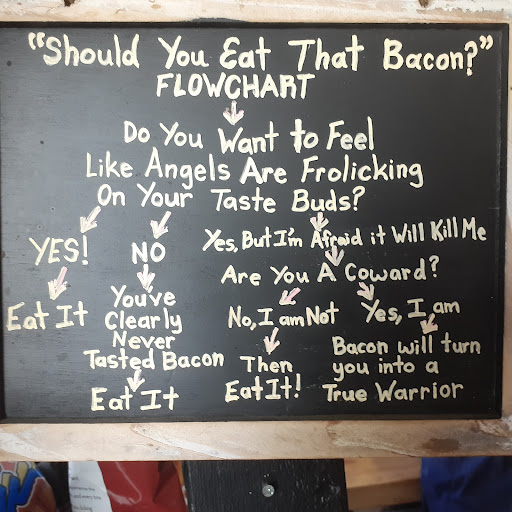 "Should You Eat That Bacon?"
FLOWCHART
Do You Want to Feel
Like Angels Are Frolicking
On Your Taste Buds?
YES!
Eat It
NO
You've
Clearly
Never
Tasted Bacon
Eat It
Yes, But I'm Afraid it Will Kill Me
Are You A Coward?
No, I am Not
Then
Eat It!
Yes, I am
Bacon will turn
you into a
True Warrior